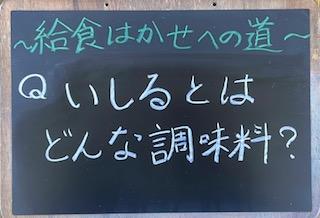 ~給食はかせへの道~
Q いしるとは
どんな調味料?